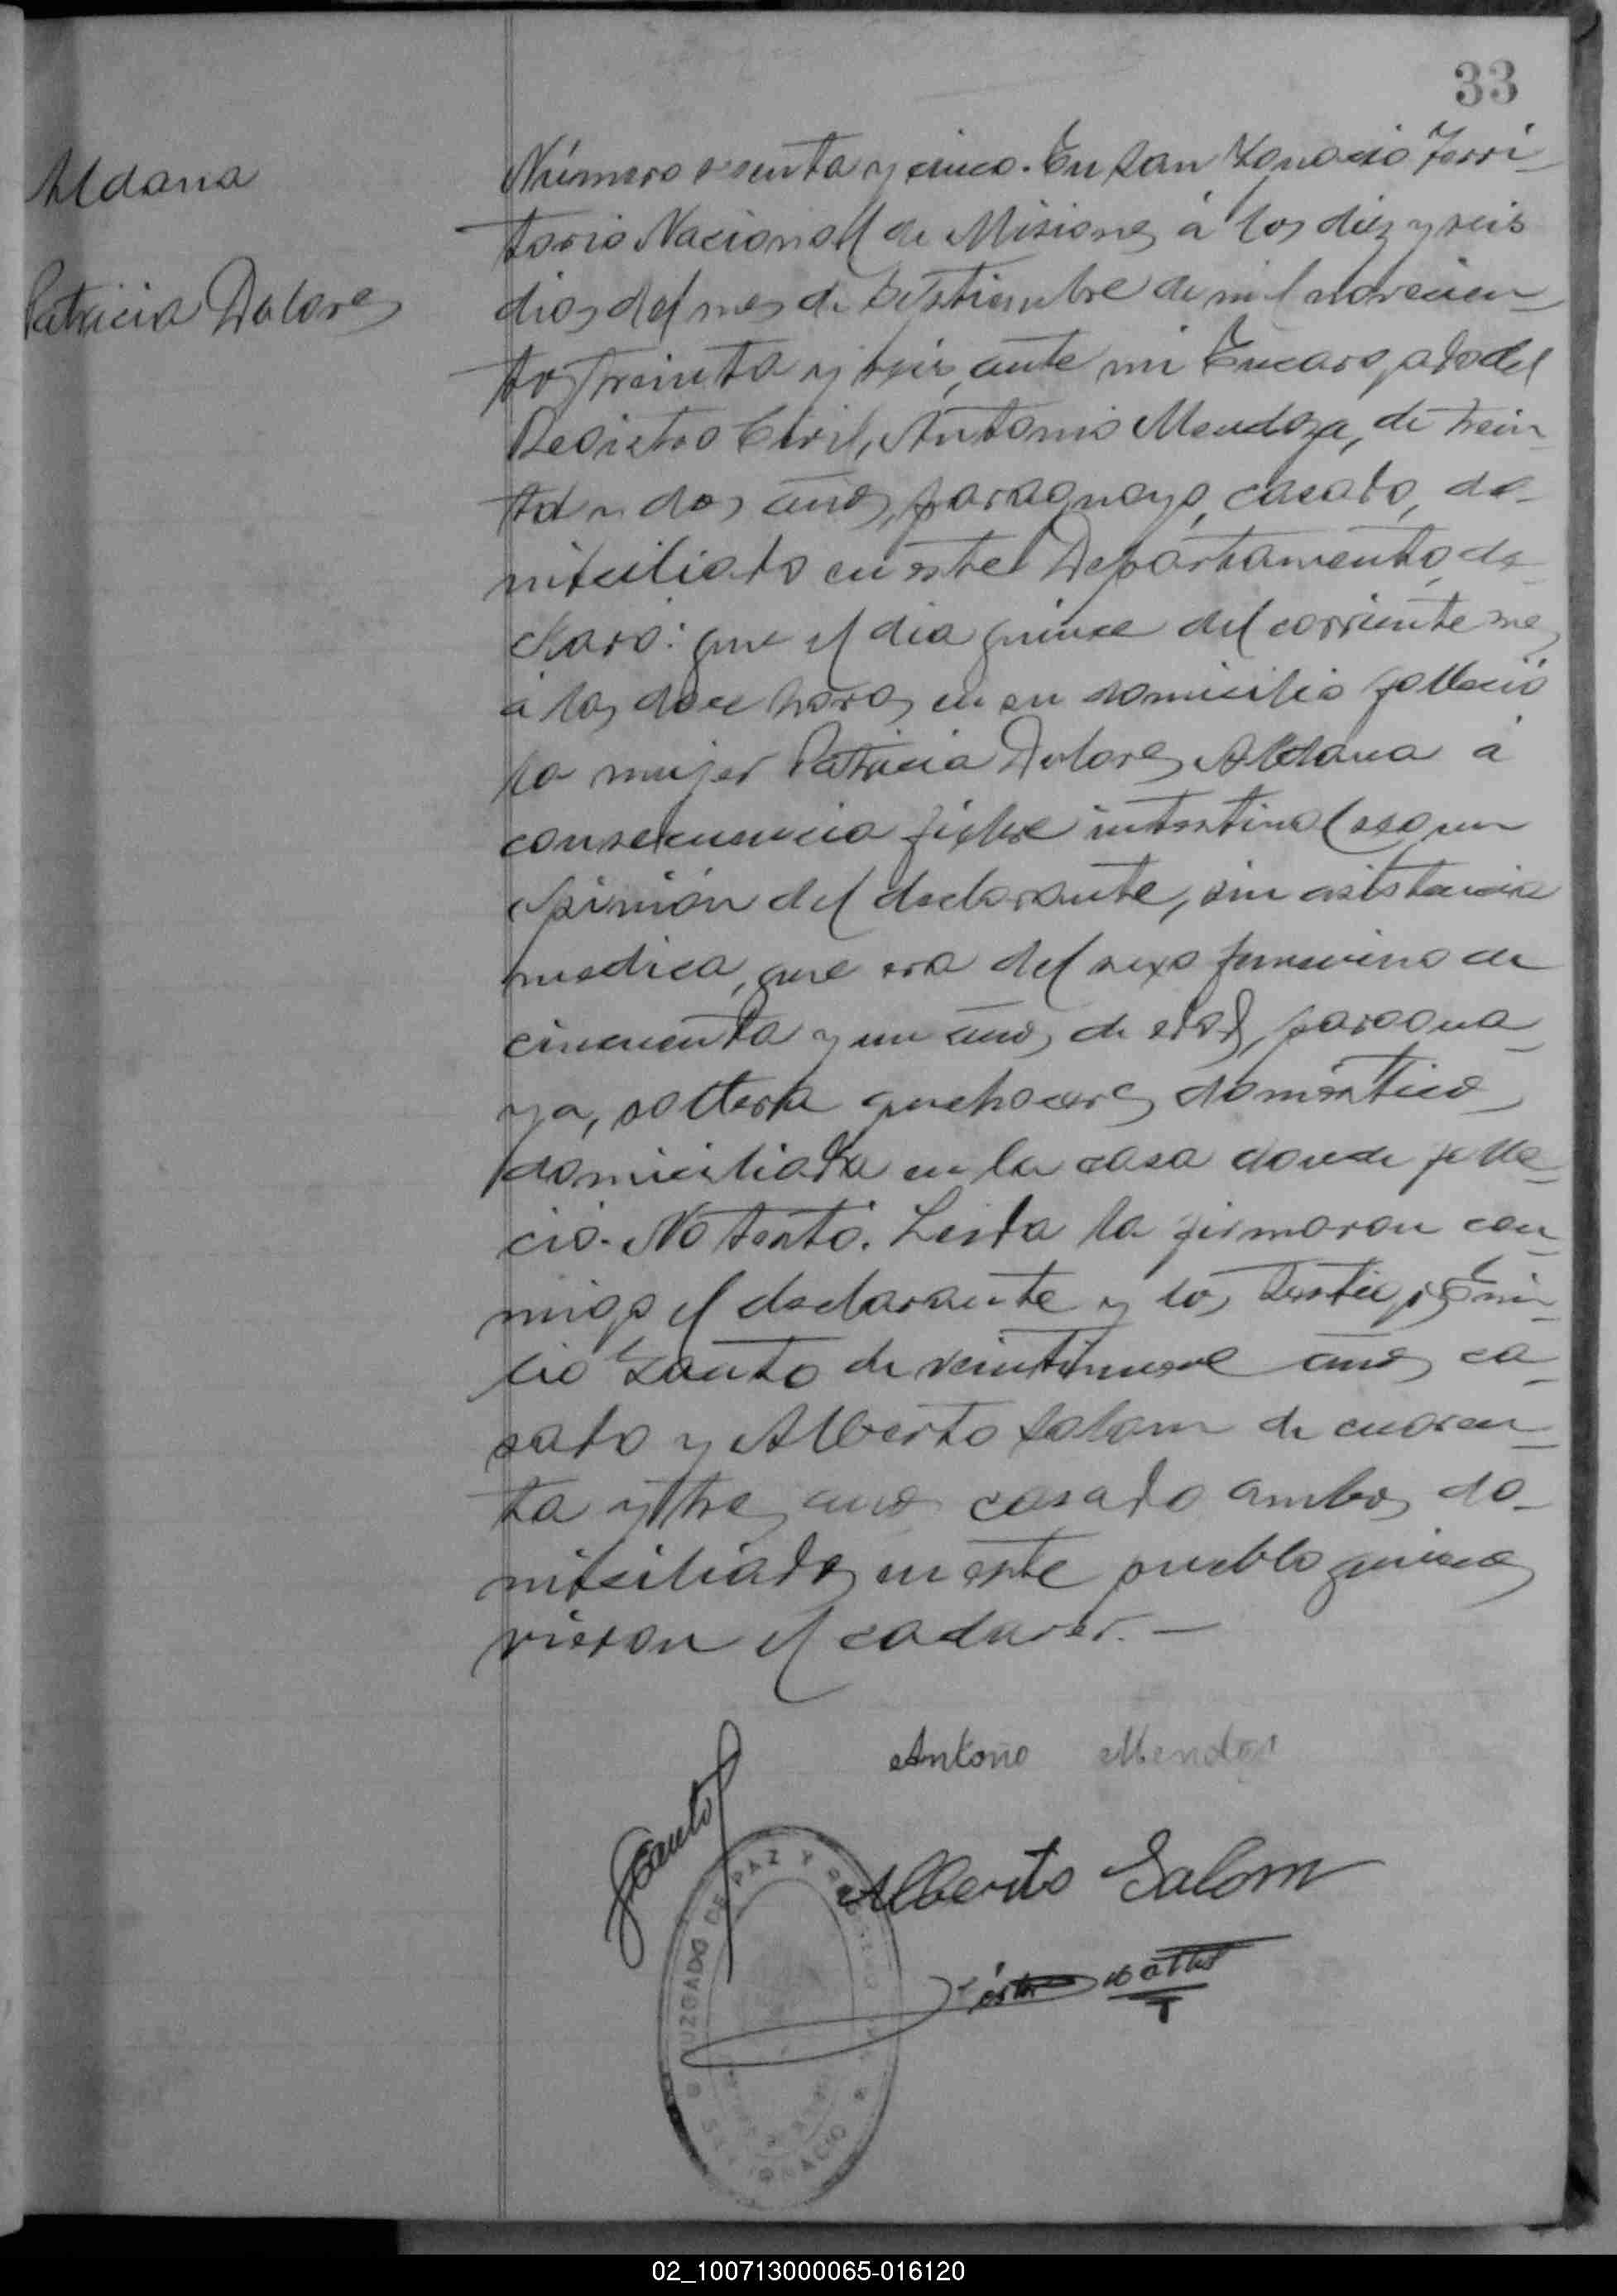 33
Aldana
Patricia Dolores
Número sesenta y cinco. En San Ignacio Terri-
torio Nacional de Misiones á los diez y seis
dias del mes de Setiembre de mil novecien-
tos treinta y seis, ante mi Encargado del
Registro Civil, Antonio Mendoza, de trein-
ta y dos años, paraguayo, casado, do-
miciliado en este Departamento, de-
claró: que el dia quince del corriente mes
á las doce horas en su domicilio falleció
la mujer Patricia Dolores Aldana á
consecuencia fiebre intestinal segun
opinión del declarante, sin asistencia
medica, que era del sexo femenino de
cincuenta y un años de edad, paragua-
ya, soltera quehaceres domésticos
domiciliada en la casa donde falle-
ció. No testó. Leida la firmaron con-
migo el declarante y los testigos
de veintinueve años ca-
sado y Alberto Salom de cuaren-
ta y tres años casado ambos do-
miciliados en este pueblo quienes
vieron el cadaver. —
Antonio Mendoza
Alberto Salom
JUZGADO DE PAZ Y
IGNACIO
02_100713000065-016120